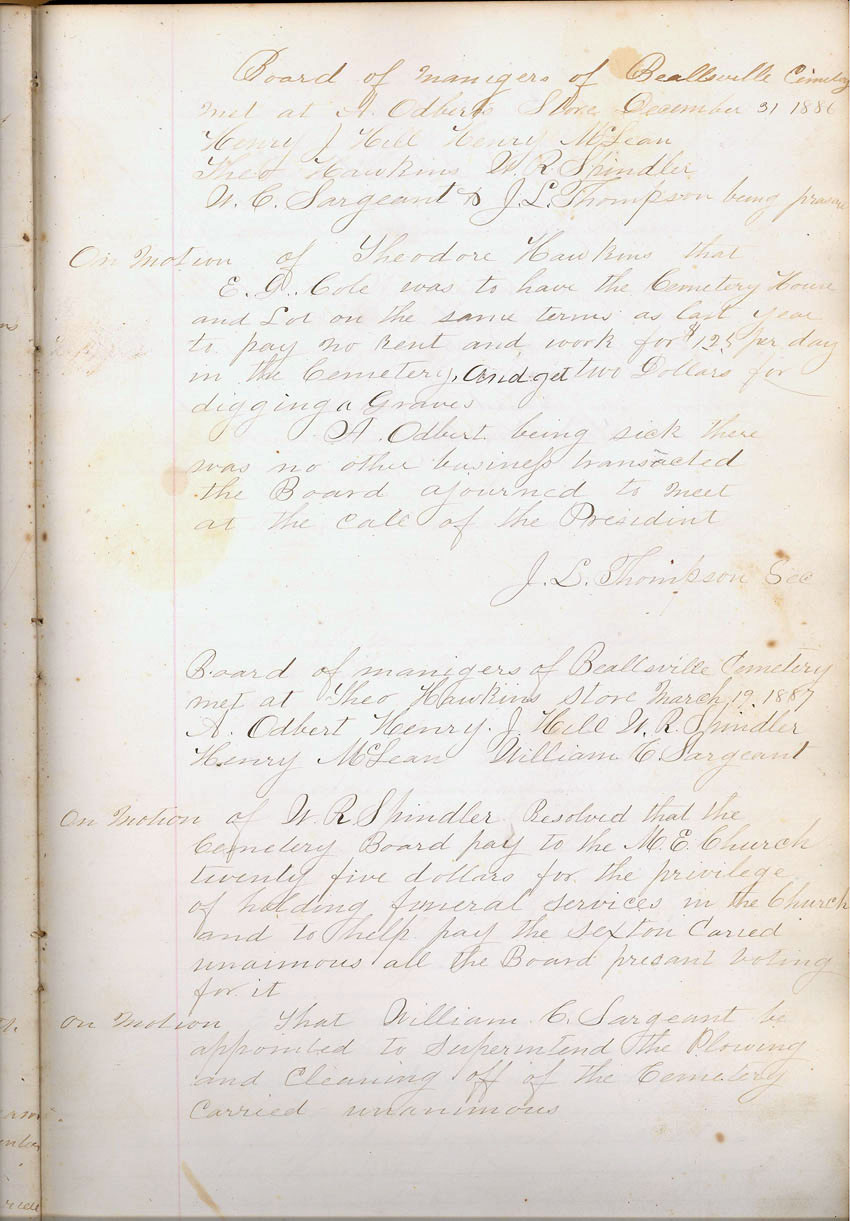 Board of manigers of Beallsville Cemetery
met at A. Odberts Store December 31 1886
Henry J Hill Henry McLean
Theo Hawkins W. R Spindler
W. C. Sargeant & J. L. Thompson being
On Motion of Theodore Hawkins that
E. D. Cole was to have the Cemetery House
and Lot on the same terms as last year
to pay no rent and work for $1.25 per day
in the Cemetery, and get two Dollars for
digging a Graves
A. Odbert being sick there
was no other business transacted
the Board ajourned to meet
at the call of the Presidint
J. L. Thompson Sec
Board of manigers of Beallsville Cemetery
met at Theo Hawkins Store March 19. 1887
A. Odbert Henry. J. Hill W. R. Spindler
Henry McLean William C Sargeant
On Motion of W. R Spindler Resolved that the
Cemetery Board pay to the M. E. Church
twenty five dollars for the privilege
of holding funeral services in the Church
and to help pay the sexton Caried
unaimous all the Board presant voting
for it
On Motion that William C. Sargeant be
appointed to Superintend the Plowing
and Cleaning off of the Cemetery
Carried unanimous